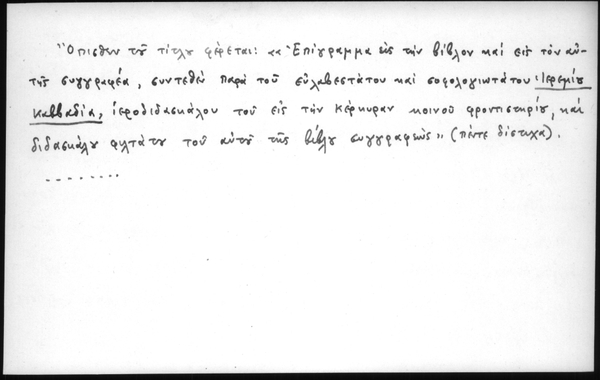 "Όπισθεν τοῦ τίτλου φέρεται: «Ἐπίγραμμα εἰς τὴν βίβλον καὶ εἰς τὸν αὐ-
τῆς συγγραφέα, συντεθὲν παρὰ τοῦ εὐλαβεστάτου καὶ σοφολογιωτάτου Ἱερεμίου
Καββαδία, ἱεροδιδασκάλου τοῦ εἰς τὴν Κέρκυραν κοινοῦ φροντιστηρίου, καὶ
διδασκάλου φιλτάτου τοῦ αὐτοῦ τῆς βίβλου συγγραφέως» (πέντε δίστιχα).
.........